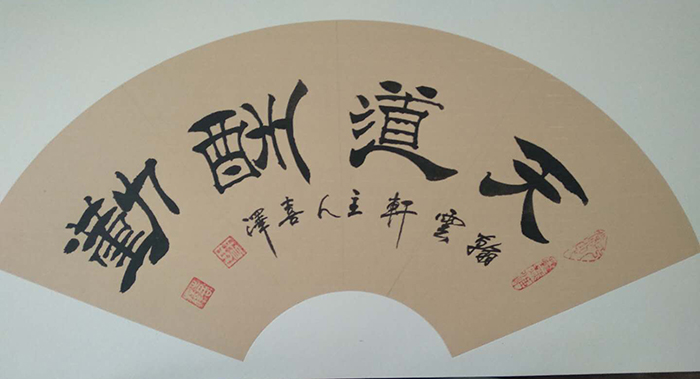 天道酬勤
翰雲軒主人喜澤